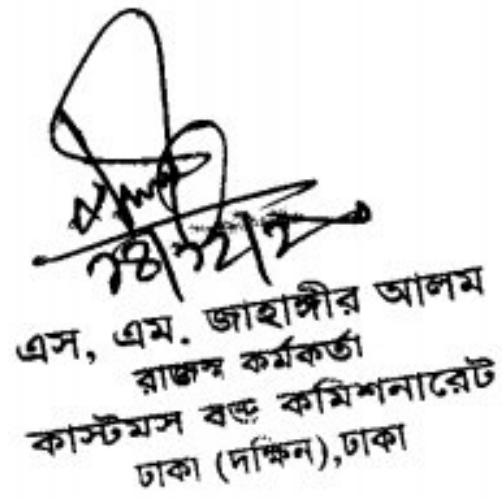 এস, এম. জাহাঙ্গীর আলম
রাজস্ব কর্মকর্তা
কাস্টমস বন্ড কমিশনারেট
ঢাকা (দক্ষিন),ঢাকা